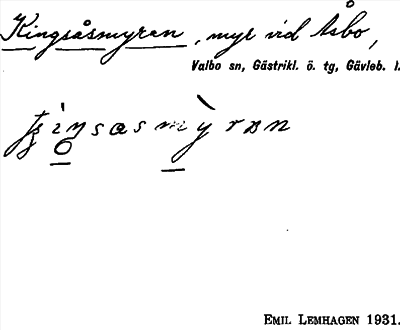 Kingsåsmyren, myr vid Åsbo,
Valbo sn, Gästrikl. ö. tg, Gävleb. l.
EMIL LEMHAGEN 1931.